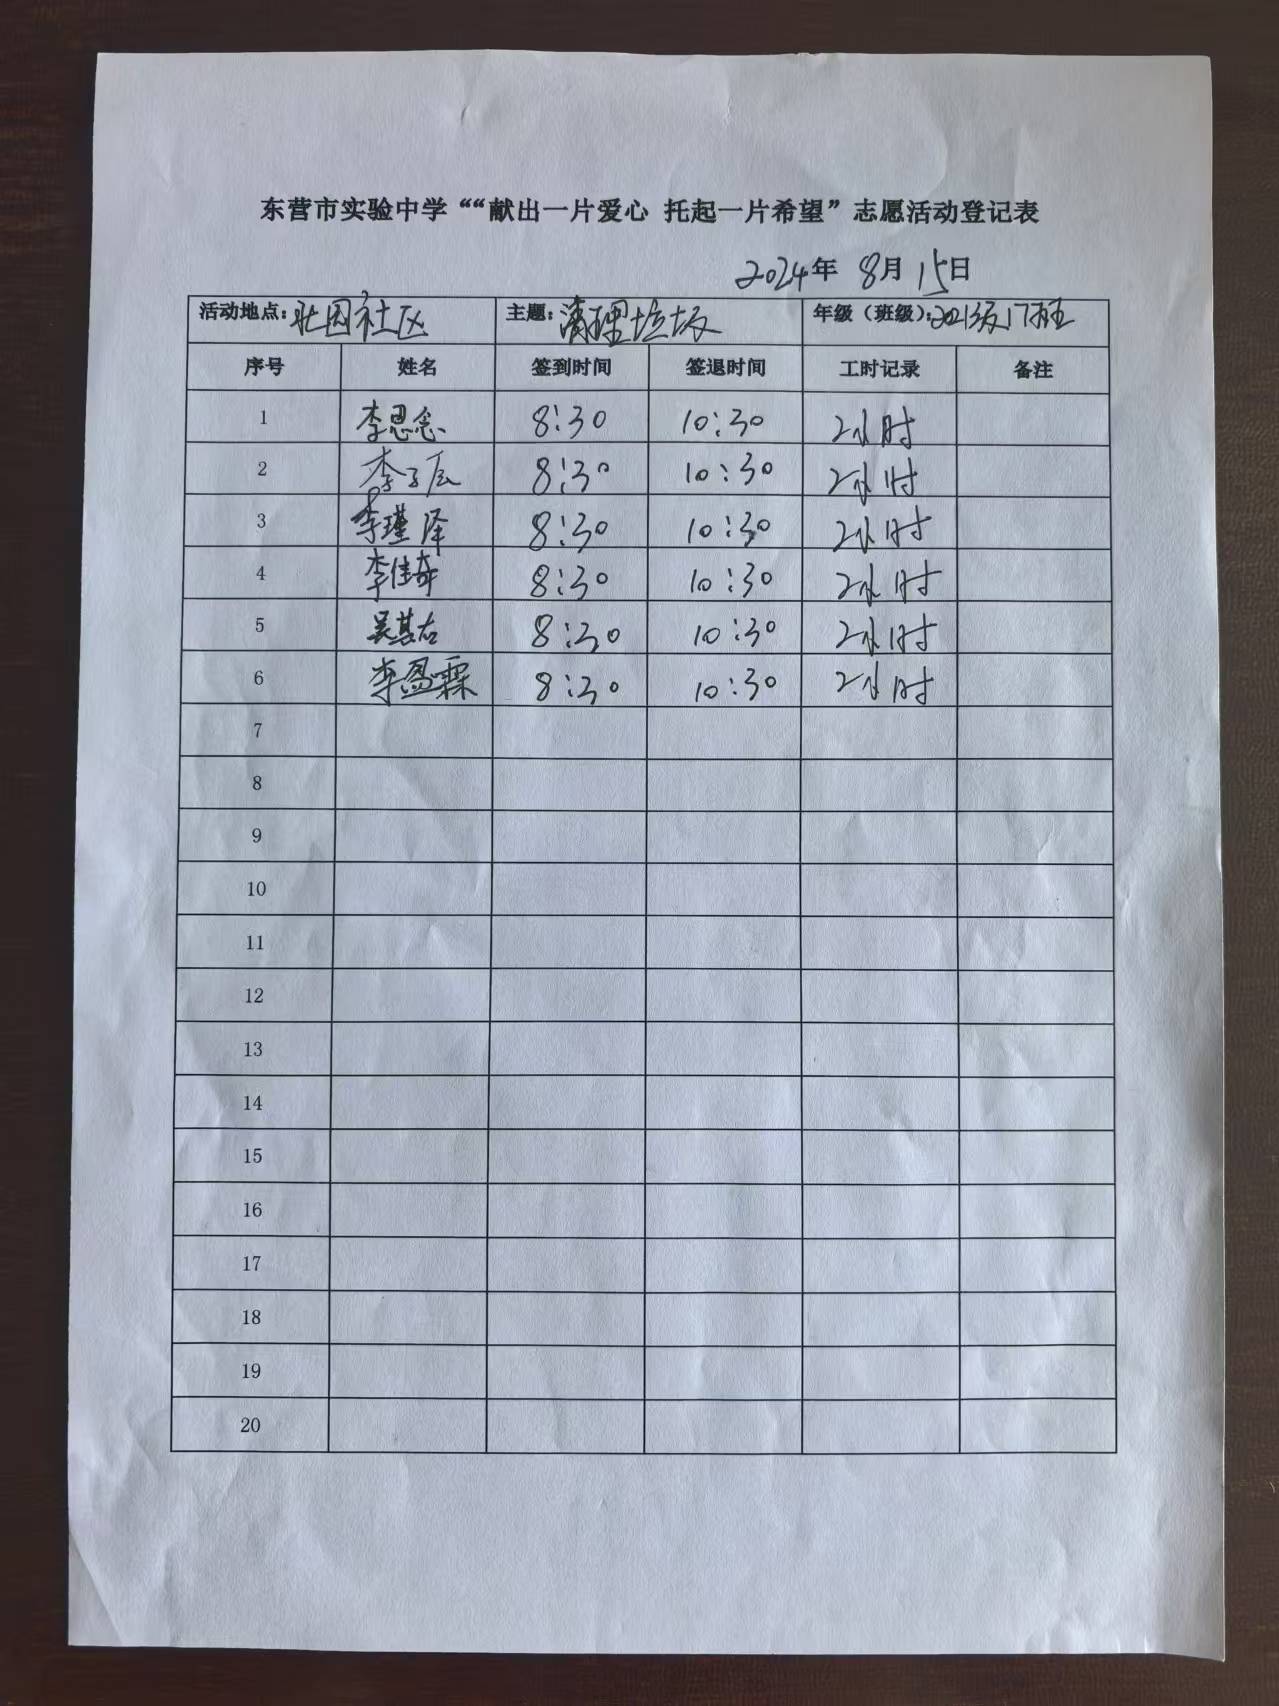 东营市实验中学““献出一片爱心 托起一片希望”志愿活动登记表
2024年 8月15日
活动地点：北园社区 主题：清理垃圾 年级（班级）：2021级17班
序号 姓名 签到时间 签退时间 工时记录 备注
1 李思念 8:30 10:30 2小时
2 李子辰 8:30 10:30 2小时
3 李瑾泽 8:30 10:30 2小时
4 李佳奇 8:30 10:30 2小时
5 吴其右 8:30 10:30 2小时
6 李盈霖 8:30 10:30 2小时
7
8
9
10
11
12
13
14
15
16
17
18
19
20